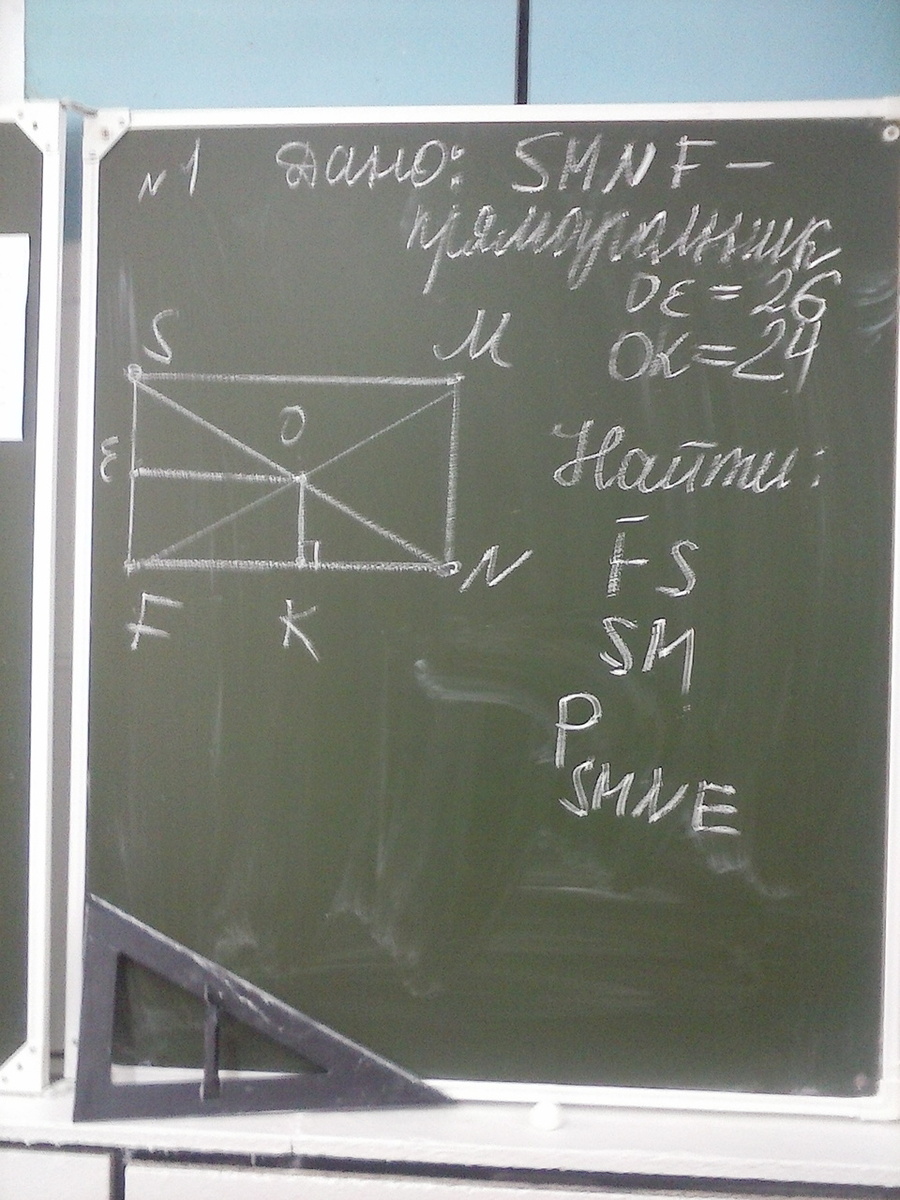 N1 Дано: SMNF –
прямоугольник
OE = 26
OK = 24
S M
O
E
N
F K
Найти:
FS
SM
P
SMNE